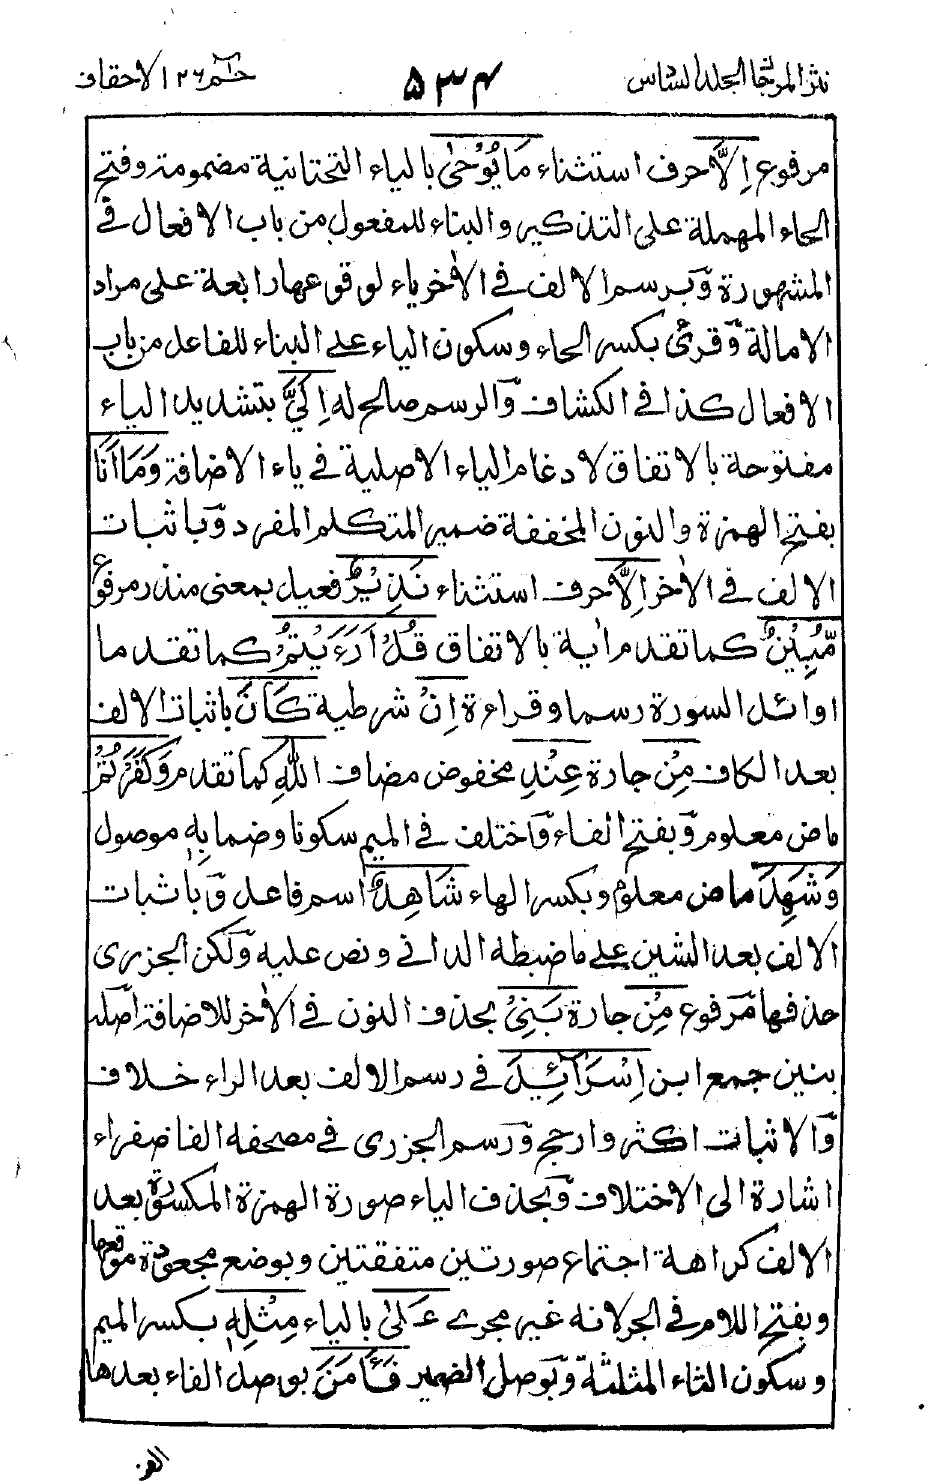 نثر المرجان الجلد السادس ۵۳۴ حٰم ۲۶ الاحقاف
مرفوع اِلَّا حرف استثناء مَا يُوْحٰى بالياء التحتانية مضمومة وفتح
الحاء المهملة على التذكير والبناء للمفعول من باب الافعال في
المشهورة وَبرسم الالف في الاٰخر ياء لوقوعها رابعة على مراد
الامالة وَقرئ بكسر الحاء وسكون الياء على البناء للفاعل من باب
الافعال كذا في الكشاف وَالرسم صالح له اِلَيَّ بتشديد الياء
مفتوحة بالاتفاق لادغام الياء الاصلية في ياء الاضافة وَمَا اَنَا
بفتح الهمزة والنون المخففة ضمير المتكلم المفرد وَباثبات
الالف في الاٰخر اِلَّا حرف استثناء نَذِيْرٌ فعيل بمعنى منذر مرفوع
مُّبِيْنٌ كما تقدم اٰية بالاتفاق قُلْ اَرَءَيْتُمْ كما تقدم ما
اوائل السورة رسما وقراءة اِنْ شرطية كَانَ باثبات الالف
بعد الكاف مِنْ جارة عِنْدِ مخفوض مضاف اللّٰهِ كما تقدم وَكَفَرْتُمْ
ماض معلوم وَبفتح الفاء وَاختلف في الميم سكونا وضما بِهٖ موصول
وَشَهِدَ ماض معلوم وبكسر الهاء شَاهِدٌ اسم فاعل وَباثبات
الالف بعد الشين على ما ضبطه الداني ونص عليه وَلكن الجزرى
حذفها مَرفوع مِنْ جارة بَنِيْ بحذف النون في الاٰخر للاضافة اصله
بنين جمع ابن اِسْرَآئِيْلَ في رسم الالف بعد الراء خلاف
وَالاثبات اكثر وارجح وَرسم الجزرى في مصحفه الفا صفراء
اشارة الى الاختلاف وَبحذف الياء صورة الهمزة المكسورة بعد
الالف كراهة اجتماع صورتين متفقتين وبوضع مجعودة موقعها
وبفتح اللام في الجر لانه غير مجرى عَلٰى بالياء مِثْلِهٖ بكسر الميم
وسكون الثاء المثلثة وَبوصل الضمير فَـَٔامَنَ بوصل الفاء بعدها